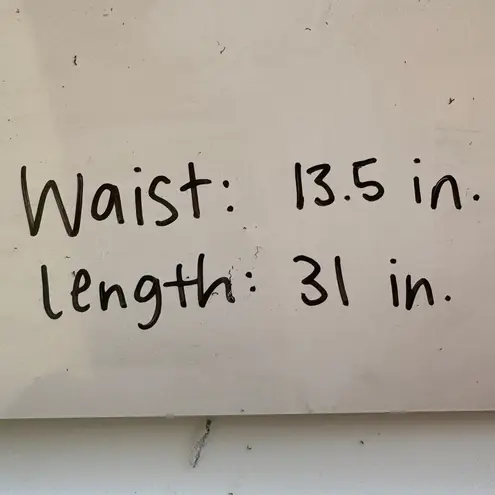 Waist: 13.5 in.
length: 31 in.